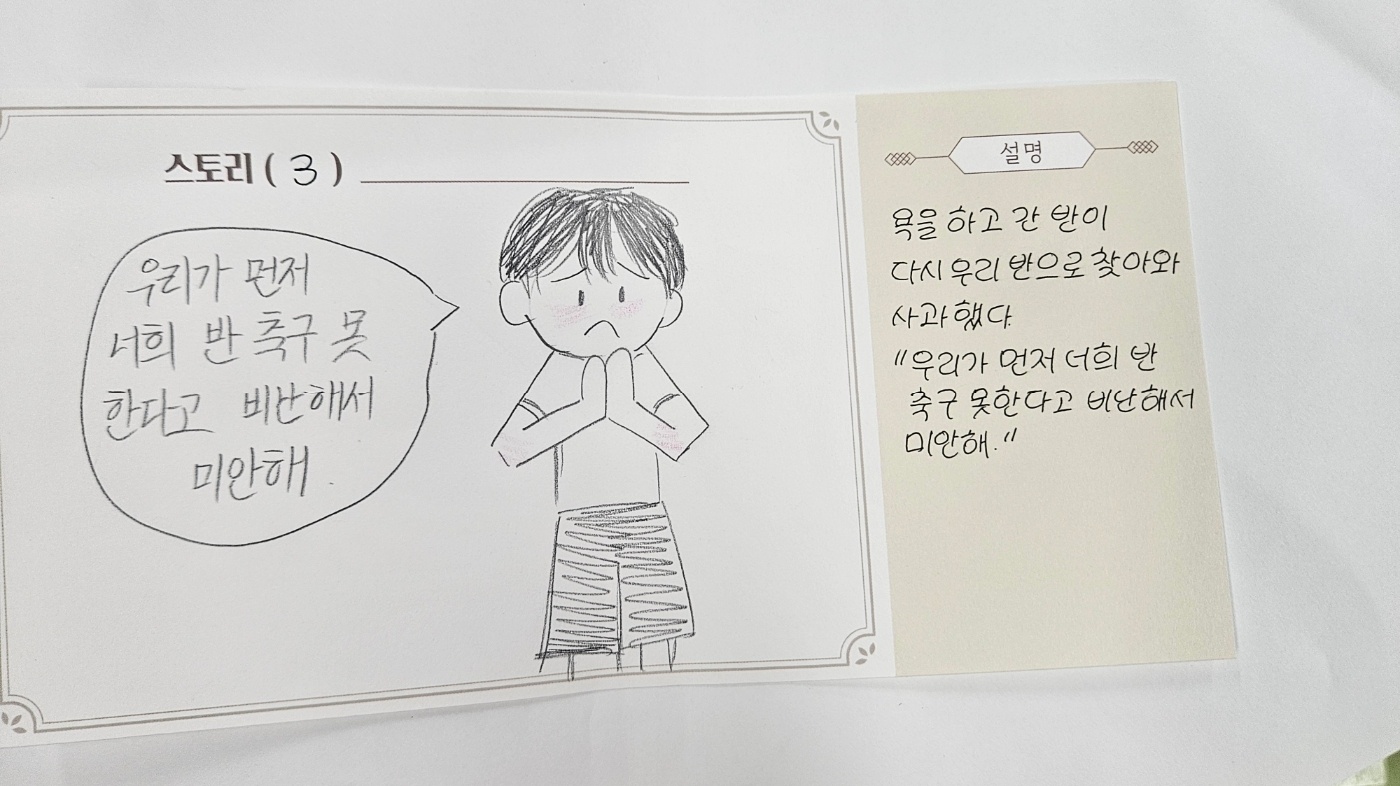 스토리 ( 3 )
우리가 먼저
너희 반 축구 못
한다고 비난해서
미안해.
설명
욕을 하고 간 반이
다시 우리 반으로 찾아와
사과했다.
"우리가 먼저 너희 반
축구 못한다고 비난해서
미안해."